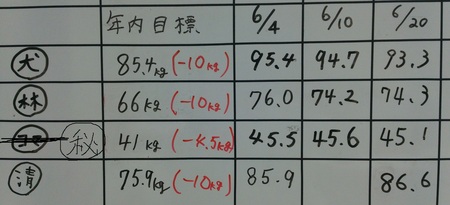 年内目標 6/4 6/10 6/20
犬 85.4kg (-10kg) 95.4 94.7 93.3
林 66kg (-10kg) 76.0 74.2 74.3
秘 41kg (-4.5kg) 45.5 45.6 45.1
清 75.9kg (-10kg) 85.9 86.6